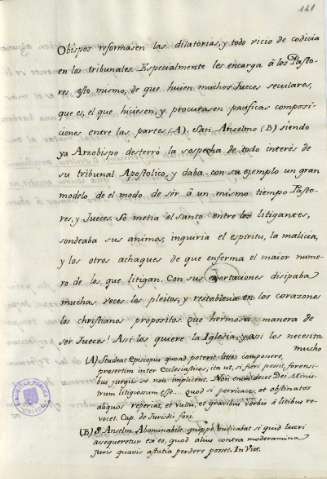 141
Obispos reformasen las dilatorias, y todo vicio de codicia
en los tribunales. Especialmente les encarga á los Pasto-
res, esto, mismo, de que huien muchos Jueces seculares,
que es, el que hiciesen, y procurasen pacificas composi-
ciones entre las partes (A). San Anselmo (B) siendo
ya Arzobispo desterró la sospecha de todo interés de
su tribunal Apostolico, y daba con su ejemplo un gran
modelo de el modo de ser á un mismo tiempo Pasto-
res, y Jueces. Se metia el Santo entre los litigantes,
sondeaba sus animos, inquiria el espiritu, la malicia,
y los otros achaques de que enferma el maior nume-
ro de los, que litigan. Con sus exortaciones disipaba
muchas veces los pleitos, y restablecia en los corazones
los christianos propositos. Que hermosa manera de
ser Jueces! Asi los quiere la Iglesia, y asi los necesita
mucho
(A) Studeat Episcopus quoad poterit lites componere,
presertim inter Eclesiasticos, ita ut, si fieri possit, forensi-
bus jurgiis se non impliceret. Non enim decet Dei Minis-
trum litigiosum esse. quod si pervicaces et obstinatos
aliquos reperiat, et vultu, et gravibus verbis á litibus re-
vocet. Cap. de Jurisdi
(B) S. Anselm. Abominabile quippe judicabat si quid lucri
assequeretur ex eo, quod alius contra moderamina
juris quavis astutia perdere posset. In Vita.